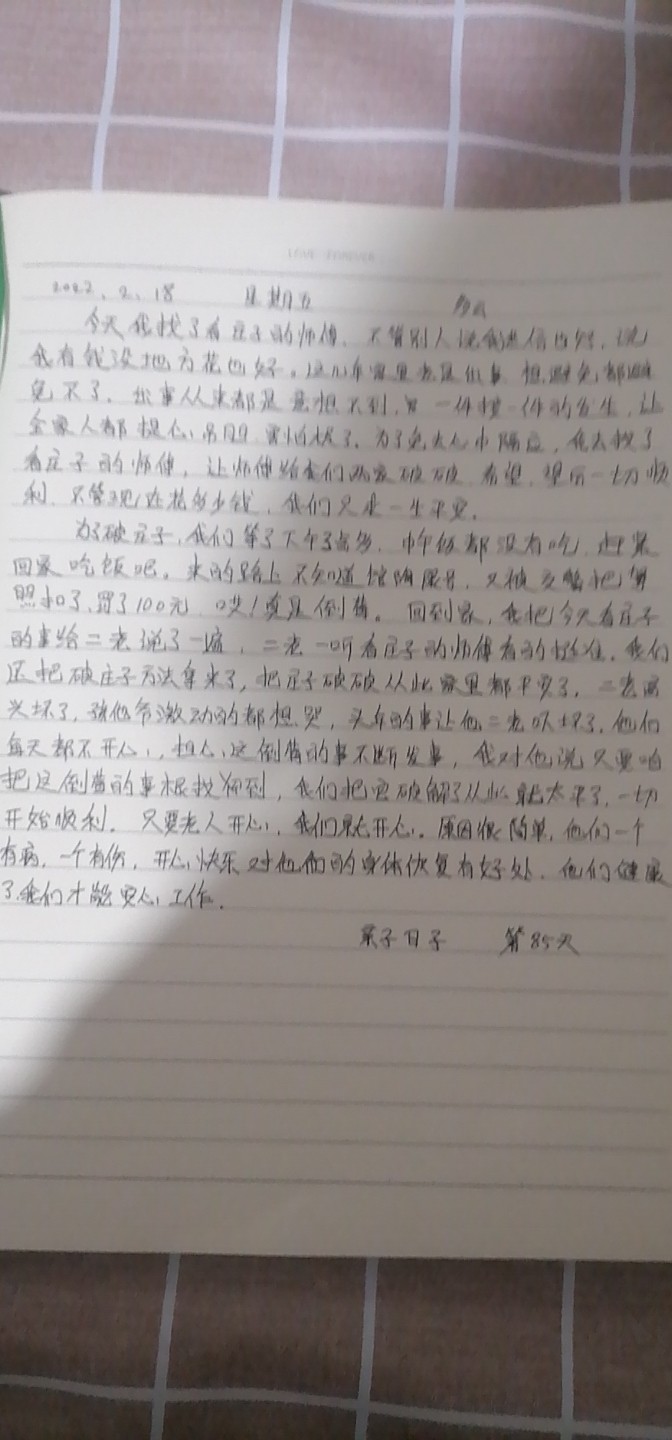 LOVE FOREVER
2022.2.18 星期五 多云
今天我找了看庄子的师傅,不管别人说我迷信也好,说
我有钱没地方花也好。这几年家里老是出事,想避免都避
免不了,出事从来都是意想不到,一件接一件的发生,让
全家人都提心吊胆,害怕极了。为了免去心中隔应,我去找了
看庄子的师傅,让师傅给我们两家破破,希望以后一切顺
利,不管现在花多少钱,我们只求一生平安。
为了破庄子,我们等了下午3点多,中午饭都没有吃,赶紧
回家吃饭吧。来的路上不知道单双限号,又被交警把驾
照扣了,罚了100元,哎!真是倒霉。回到家,我把今天看庄子
的事给二老说了一遍,二老一听看庄子的师傅看的挺准,我们
还把破庄子方法拿来了,把庄子破破从此家里都平安了,二老高
兴坏了,孩他爷激动的都想哭,头年的事让他二老吓坏了,他们
每天都不开心,担心这倒霉的事不断发事,我对他说只要咱
把这倒霉的事根找得到,我们把它破解了从此就太平了,一切
开始顺利。只要老人开心,我们就开心。原因很简单,他们一个
有病,一个有伤,开心快乐对他们的身体恢复有好处,他们健康
了,我们才能安心工作。
亲子日子 第85天